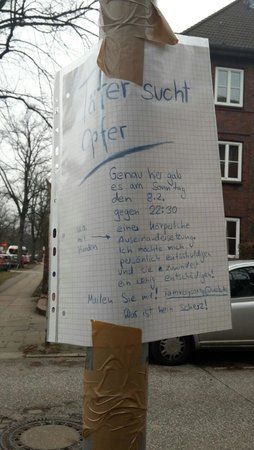 Täter sucht
Opfer
Genau hier gab
es am Sonntag
den 8.2.
gegen 22:30
eine körperliche
Auseinandersetzung.
u.a.
mit
Hunden
Ich möchte mich
persönlich entschuldigen
und sie
ein wenig entschädigen!
Mailen Sie mir!
Das ist kein Scherz!